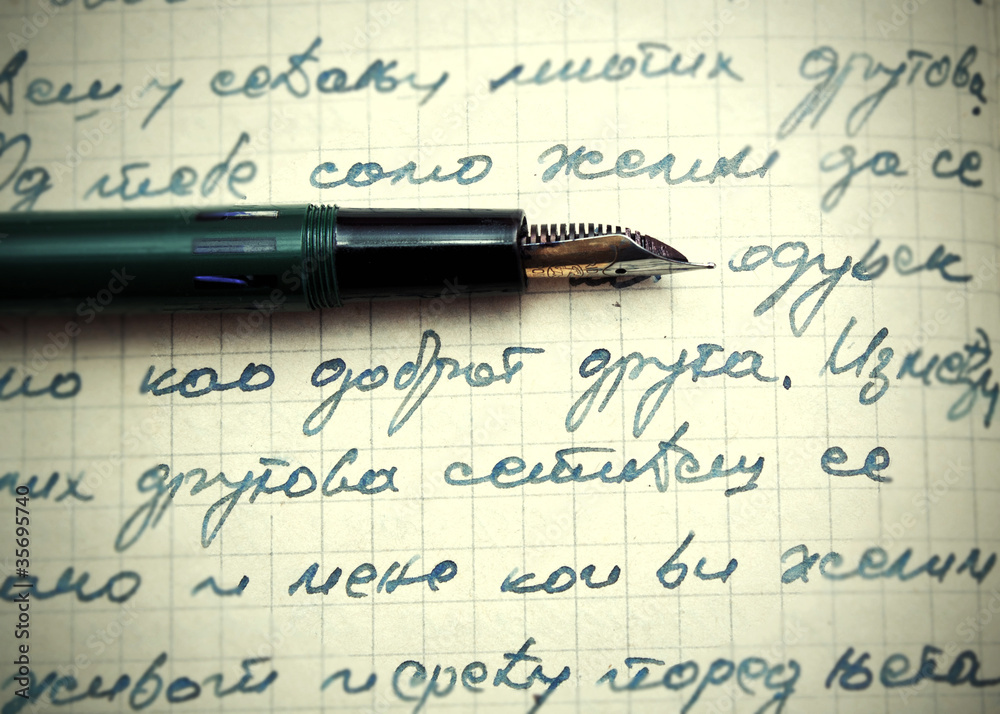 у сећању многих другова.
Од тебе само желим да се
као доброг друга. Између
них другова сетићеш се
амо и мене кои ви желим
живот и срећу поред њега
Adobe Stock | #35695740